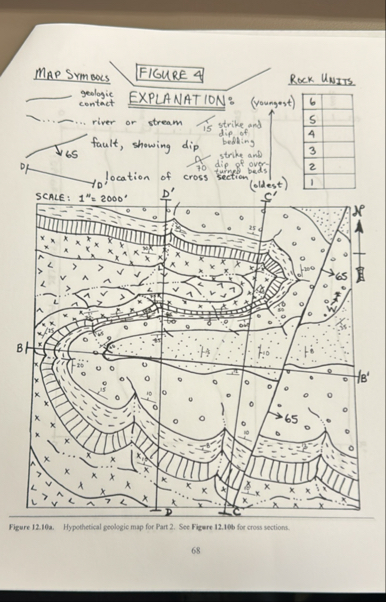 MAP SYMBOLS
FIGURE 4
ROCK UNITS
geologic contact
EXPLANATION:
(youngest)
6
river or stream
15
strike and dip of bedding
5
4
fault, showing dip
65
3
70
strike and dip of over-turned beds
2
D
D'
location of cross section
(oldest)
1
SCALE: 1"= 2000'
D'
C'
N
65
B
B'
65
D
C
Figure 12.10a. Hypothetical geologic map for Part 2. See Figure 12.10b for cross sections.
68